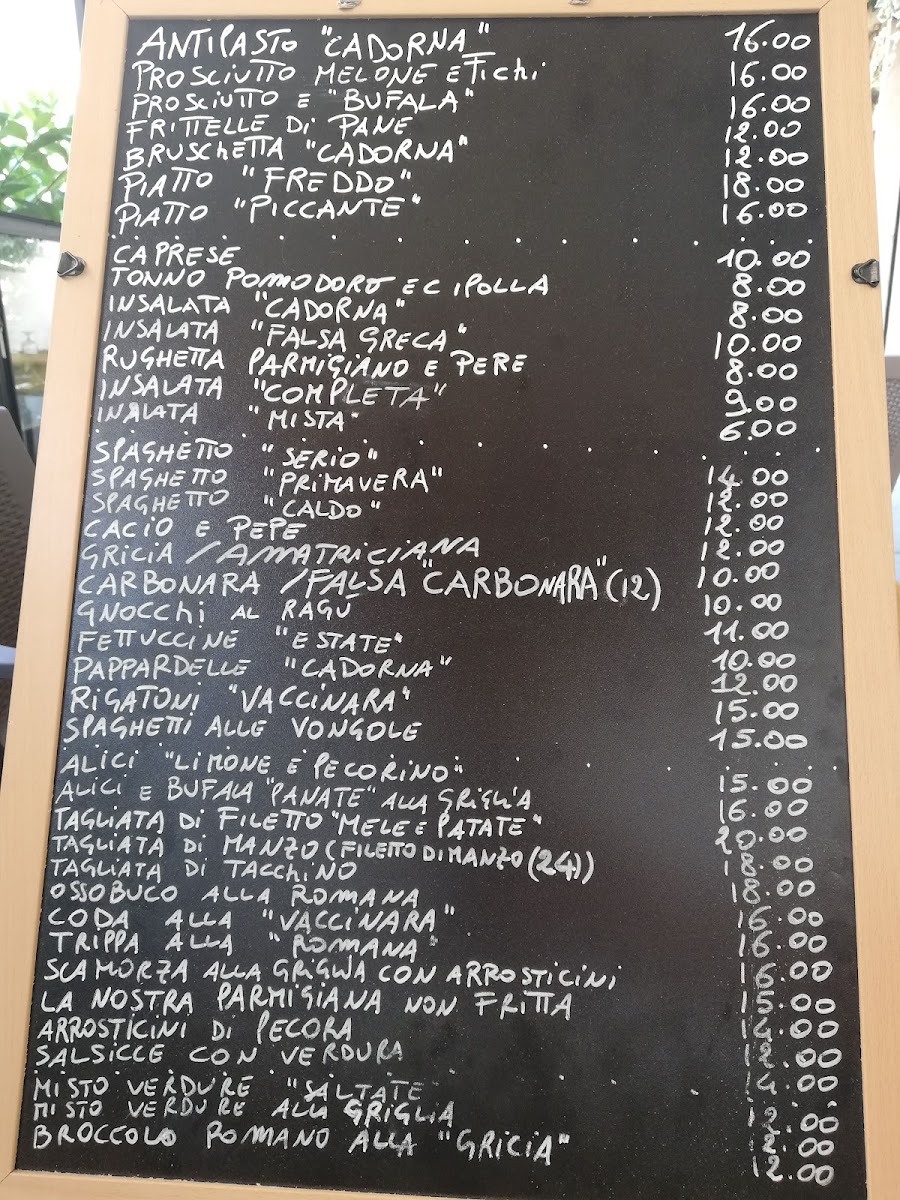 ANTIPASTO "CADORNA" 16.00
PROSCIUTTO MELONE E FICHI 16.00
PROSCIUTTO E "BUFALA" 16.00
FRITTELLE DI PANE 12.00
BRUSCHETTA "CADORNA" 12.00
PIATTO "FREDDO" 18.00
PIATTO "PICCANTE" 16.00
CAPRESE 10.00
TONNO POMODORO E CIPOLLA 8.00
INSALATA "CADORNA" 8.00
INSALATA "FALSA GRECA" 10.00
RUGHETTA PARMIGIANO E PERE 8.00
INSALATA "COMPLETA" 9.00
INSALATA "MISTA" 6.00
SPAGHETTO "SERIO" 14.00
SPAGHETTO "PRIMAVERA" 12.00
SPAGHETTO "CALDO" 12.00
CACIO E PEPE 12.00
GRICIA / AMATRICIANA 10.00
CARBONARA / FALSA "CARBONARA" (12) 10.00
GNOCCHI AL RAGU 11.00
FETTUCCINE "ESTATE" 10.00
PAPPARDELLE "CADORNA" 12.00
RIGATONI "VACCINARA" 15.00
SPAGHETTI ALLE VONGOLE 15.00
ALICI "LIMONE E PECORINO" 15.00
ALICI E BUFALA "PANATE" ALLA GRIGLIA 16.00
TAGLIATA DI FILETTO "MELE E PATATE" 20.00
TAGLIATA DI MANZO (FILETTO DI MANZO (24)) 18.00
TAGLIATA DI TACCHINO 18.00
OSSOBUCO ALLA ROMANA 16.00
CODA ALLA "VACCINARA" 16.00
TRIPPA ALLA "ROMANA" 16.00
SCAMORZA ALLA GRIGLIA CON ARROSTICINI 15.00
LA NOSTRA PARMIGIANA NON FRITTA 14.00
ARROSTICINI DI PECORA 12.00
SALSICCE CON VERDURA 14.00
MISTO VERDURE "SALTATE" 12.00
MISTO VERDURE ALLA GRIGLIA 12.00
BROCCOLO ROMANO ALLA "GRICIA" 12.00